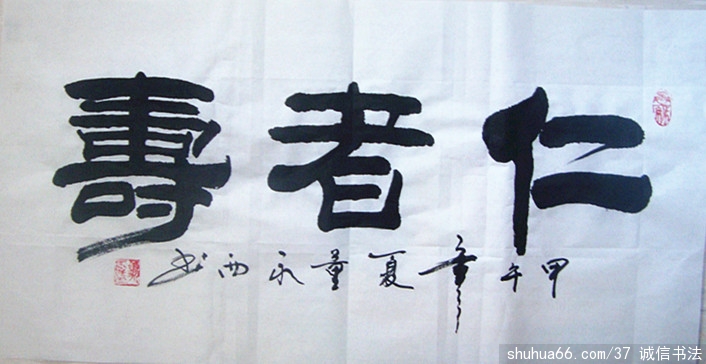 仁者壽
甲午年夏董永西书
shuhua66.com/37 诚信书法